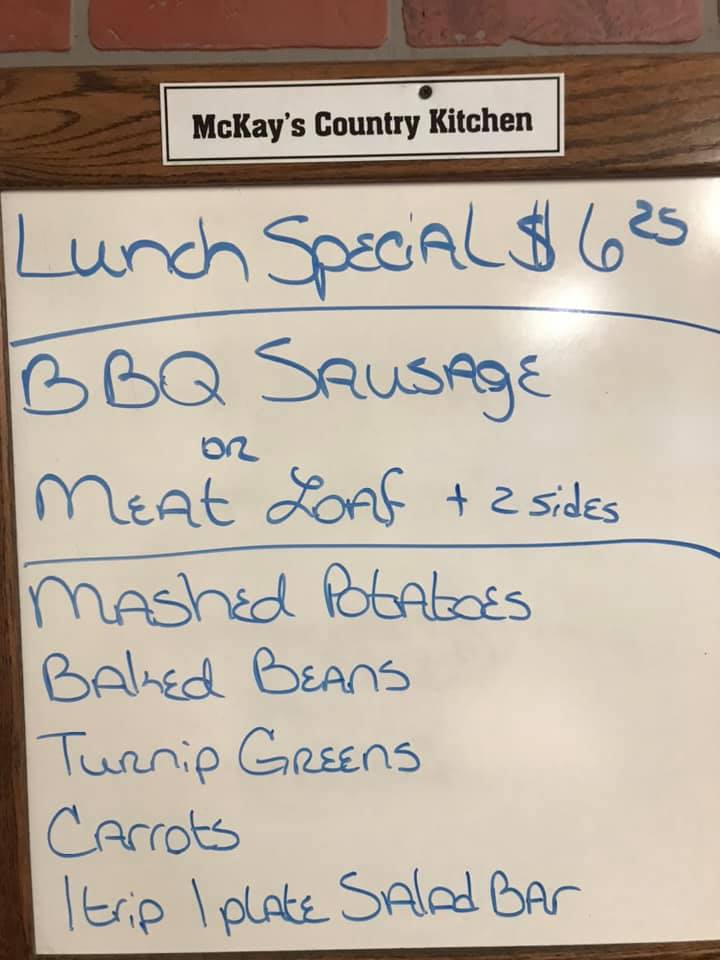 McKay's Country Kitchen
Lunch Special $6 25
BBQ Sausage
or
Meat Loaf + 2 sides
Mashed Potatoes
Baked Beans
Turnip Greens
Carrots
1 trip 1 plate Salad Bar